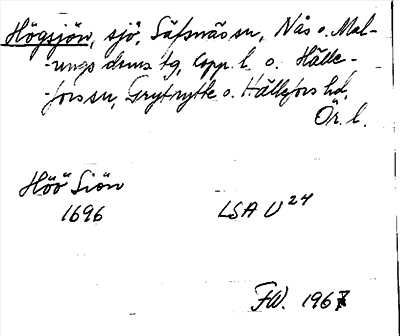 Högsjön, sjö, Säfsnäs sn, Nås o. Mal-
-ungs doms tg, Kopp. l. o. Hälle-
-fors sn, Grythytte o. Hällefors hd,
Ör. l.
Höö Siön
1696 LSA U 24
FW. 1967